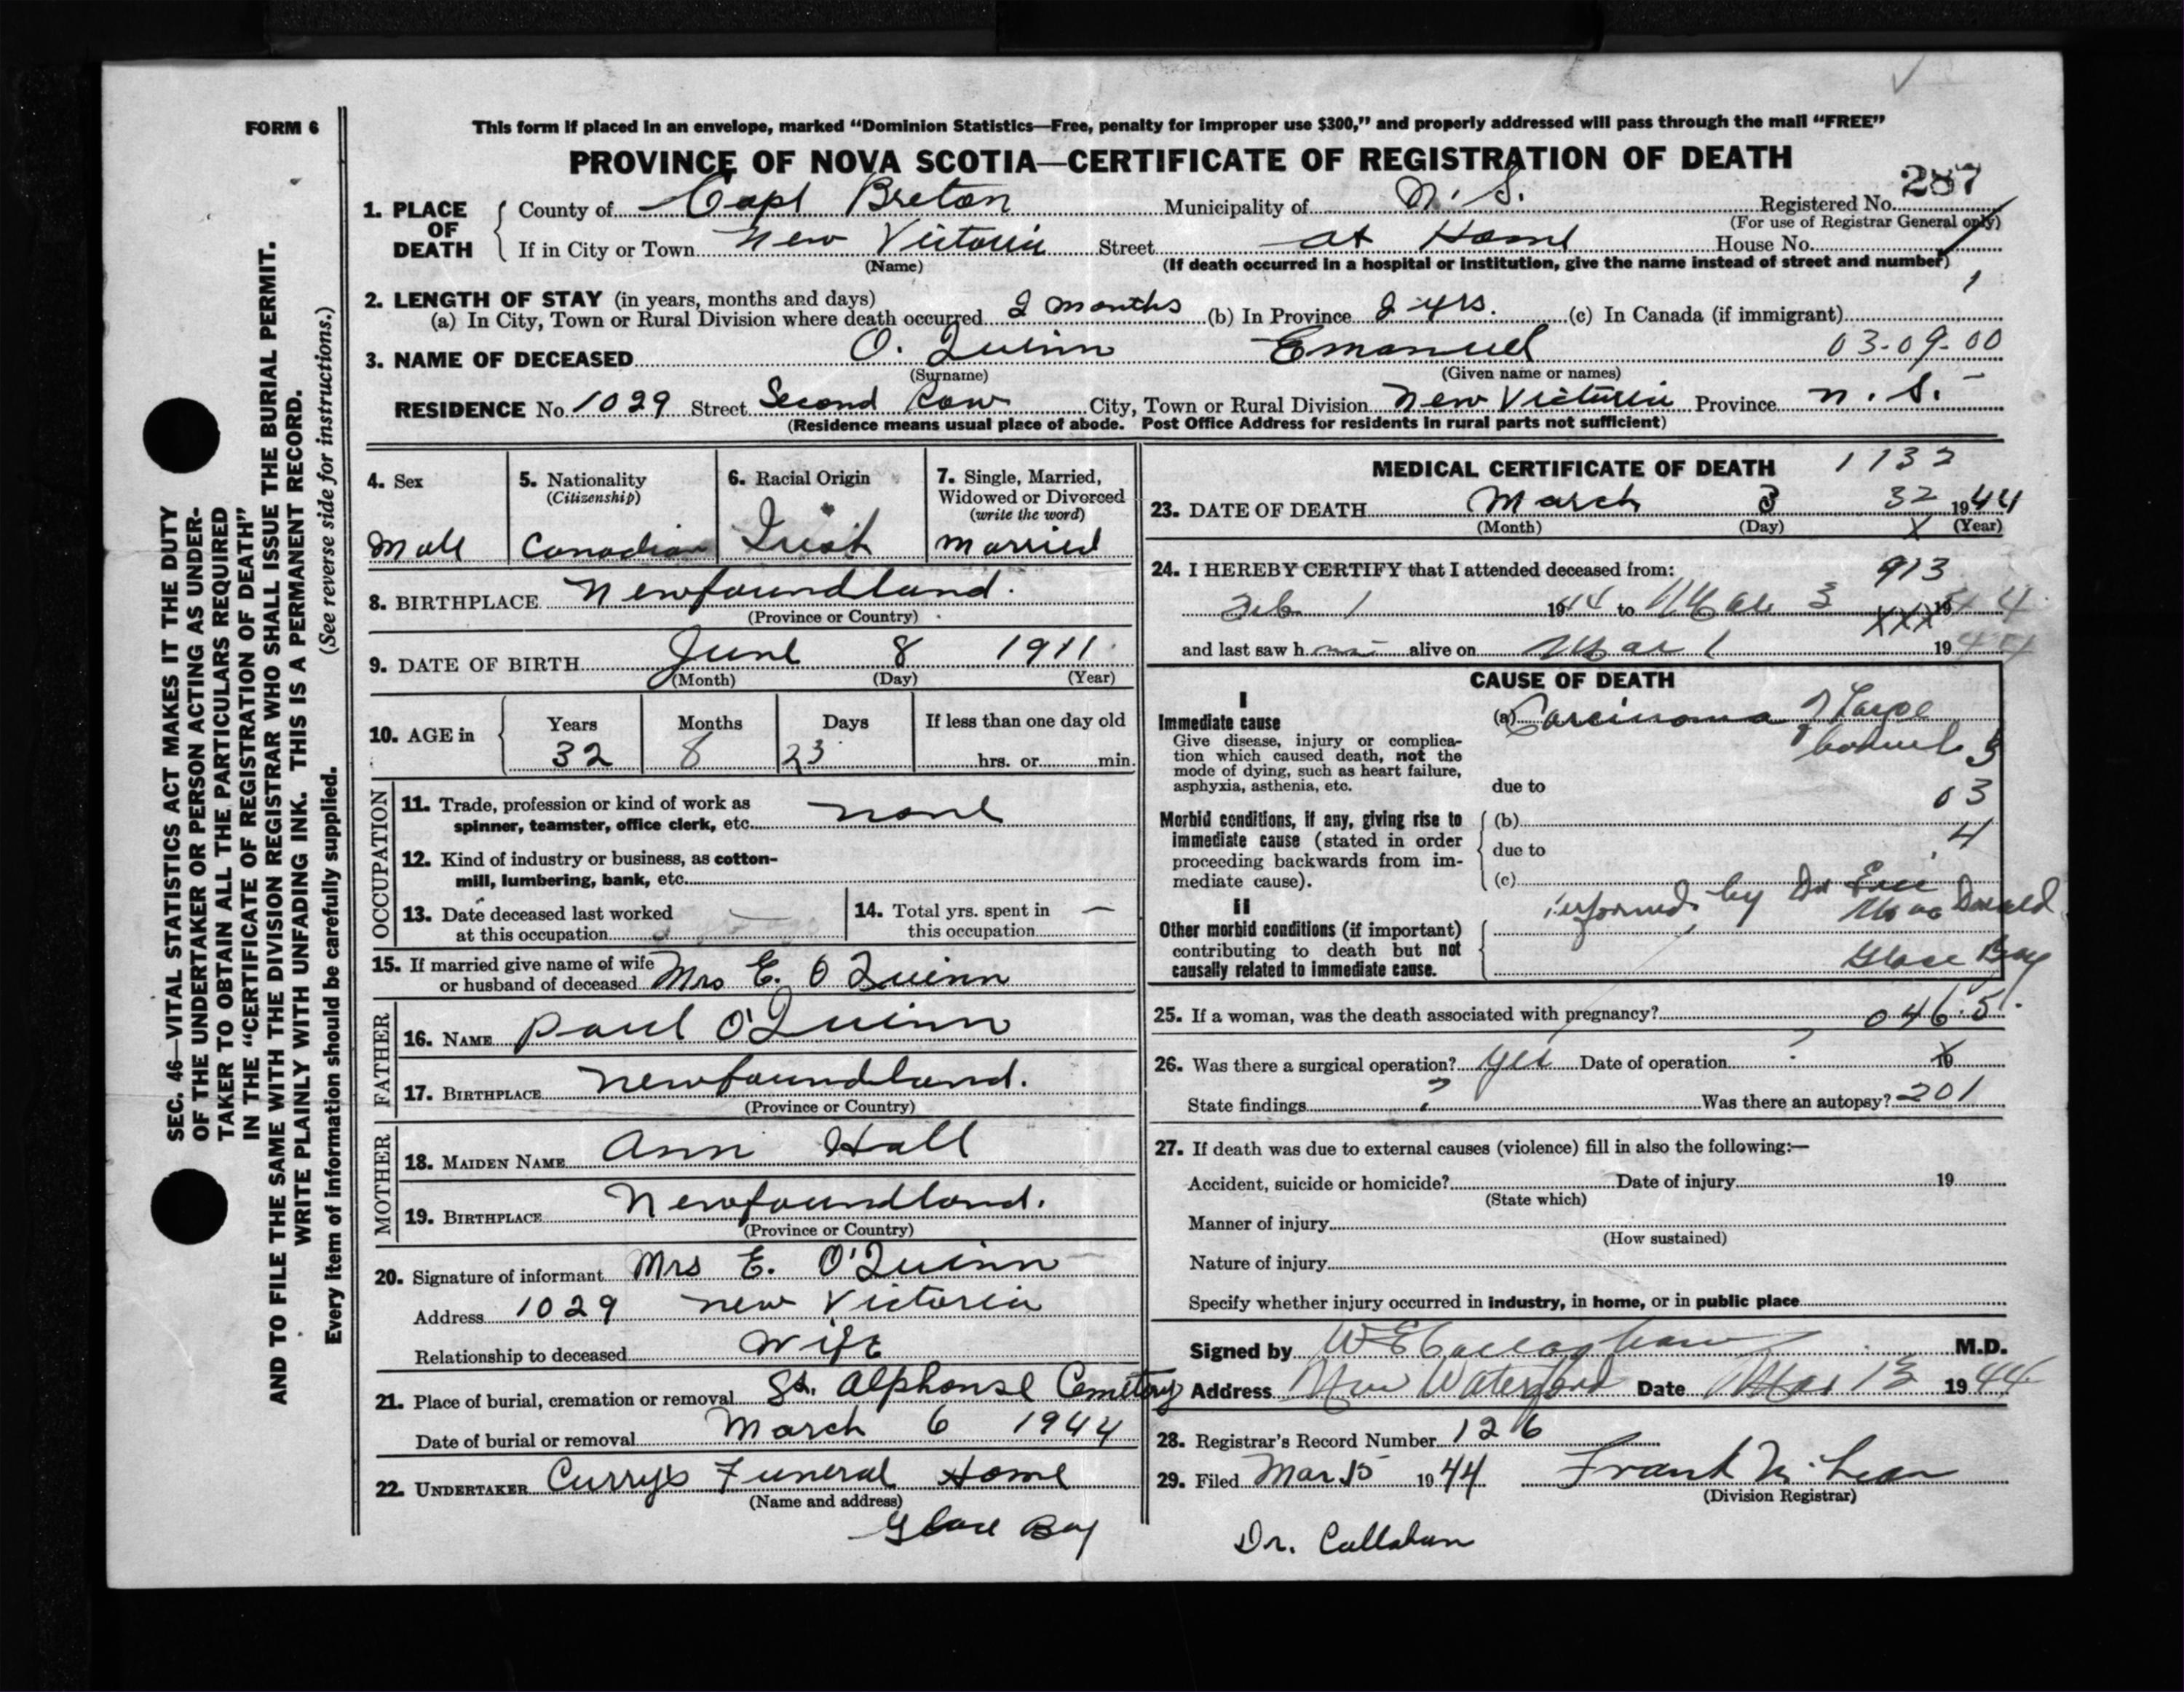 FORM 6
This form if placed in an envelope, marked "Dominion Statistics—Free, penalty for improper use $300," and properly addressed will pass through the mail "FREE"
PROVINCE OF NOVA SCOTIA—CERTIFICATE OF REGISTRATION OF DEATH
287
1. PLACE OF DEATH County of Cape Breton Municipality of N. S. Registered No.
(For use of Registrar General only)
If in City or Town New Victoria Street at Home House No.
(Name) (If death occurred in a hospital or institution, give the name instead of street and number)
1
2. LENGTH OF STAY (in years, months and days)
(a) In City, Town or Rural Division where death occurred 2 months (b) In Province 2 yrs. (c) In Canada (if immigrant)
3. NAME OF DECEASED O. Quinn Emanuel 03-09-00
(Surname) (Given name or names)
RESIDENCE No. 1029 Street Second Row City, Town or Rural Division New Victoria Province N. S.
(Residence means usual place of abode. Post Office Address for residents in rural parts not sufficient)
4. Sex
Male
5. Nationality
(Citizenship)
Canadian
6. Racial Origin
Irish
7. Single, Married,
Widowed or Divorced
(write the word)
Married
8. BIRTHPLACE Newfoundland.
(Province or Country)
9. DATE OF BIRTH June 8 1911
(Month) (Day) (Year)
10. AGE in Years Months Days If less than one day old
32 8 23 hrs. or min.
OCCUPATION
11. Trade, profession or kind of work as
spinner, teamster, office clerk, etc. none
12. Kind of industry or business, as cotton-
mill, lumbering, bank, etc.
13. Date deceased last worked
at this occupation
14. Total yrs. spent in
this occupation —
15. If married give name of wife
or husband of deceased Mrs E. O Quinn
FATHER
16. NAME Paul O'Quinn
17. BIRTHPLACE Newfoundland.
(Province or Country)
MOTHER
18. MAIDEN NAME Ann Hall
19. BIRTHPLACE Newfoundland.
(Province or Country)
20. Signature of informant Mrs E. O'Quinn
Address 1029 New Victoria
Relationship to deceased Wife
21. Place of burial, cremation or removal St. Alphonse Cemetery
Date of burial or removal March 6 1944
22. UNDERTAKER Currys Funeral Home
(Name and address)
Glace Bay
MEDICAL CERTIFICATE OF DEATH 1132
23. DATE OF DEATH March 3 32 1944
(Month) (Day) X (Year)
24. I HEREBY CERTIFY that I attended deceased from: 913
Feb 1 1944 to Mar 3 XXX 1944
and last saw him alive on Mar 1 1944
CAUSE OF DEATH
I
Immediate cause
Give disease, injury or complica-
tion which caused death, not the
mode of dying, such as heart failure,
asphyxia, asthenia, etc.
(a) Carcinoma of Large
bowel 5
due to
03
Morbid conditions, if any, giving rise to
immediate cause (stated in order
proceeding backwards from im-
mediate cause).
(b)
due to 4
(c)
II
Other morbid conditions (if important)
contributing to death but not
causally related to immediate cause.
informed by Dr
Mac Donald
Glace Bay
25. If a woman, was the death associated with pregnancy? 046.5
26. Was there a surgical operation? Yes Date of operation ? 19
State findings ? Was there an autopsy? 201
27. If death was due to external causes (violence) fill in also the following:—
Accident, suicide or homicide? Date of injury 19
(State which)
Manner of injury
(How sustained)
Nature of injury
Specify whether injury occurred in industry, in home, or in public place
Signed by W E Callaghan M.D.
Address New Waterford Date Mar 13 1944
28. Registrar's Record Number 126
29. Filed Mar 15 1944 Frank McLean
(Division Registrar)
Dr. Callahan
SEC. 46—VITAL STATISTICS ACT MAKES IT THE DUTY
OF THE UNDERTAKER OR PERSON ACTING AS UNDER-
TAKER TO OBTAIN ALL THE PARTICULARS REQUIRED
IN THE "CERTIFICATE OF REGISTRATION OF DEATH"
AND TO FILE THE SAME WITH THE DIVISION REGISTRAR WHO SHALL ISSUE THE BURIAL PERMIT.
WRITE PLAINLY WITH UNFADING INK. THIS IS A PERMANENT RECORD.
Every item of information should be carefully supplied. (See reverse side for instructions.)